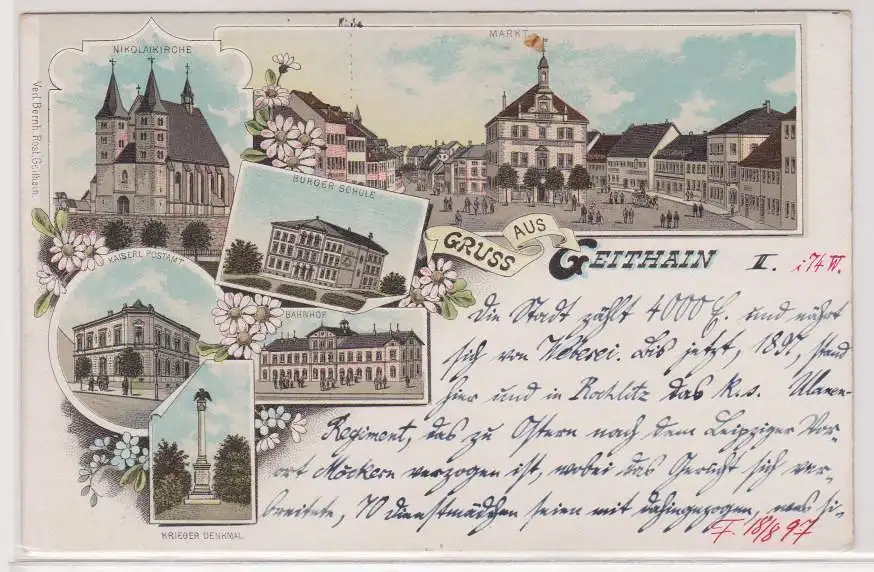 Kirche
NIKOLAIKIRCHE
MARKT
Verl. Bernh. Rost, Geithain.
BÜRGER SCHULE
GRUSS AUS GEITHAIN
II. 174 W.
KAISERL. POSTAMT
BAHNHOF
KRIEGER DENKMAL
Die Stadt zählt 4000 E. und nährt
sich von Weberei. Bis jetzt, 1897, stand
hier und in Rochlitz das k. s. Ulanen-
Regiment, das zu Ostern nach dem Leipziger Vor-
ort Möckern verzogen ist, wobei das Gerücht sich ver-
breitete, 70 Dienstmädchen seien mit dahingezogen, was
F. 18/8 97